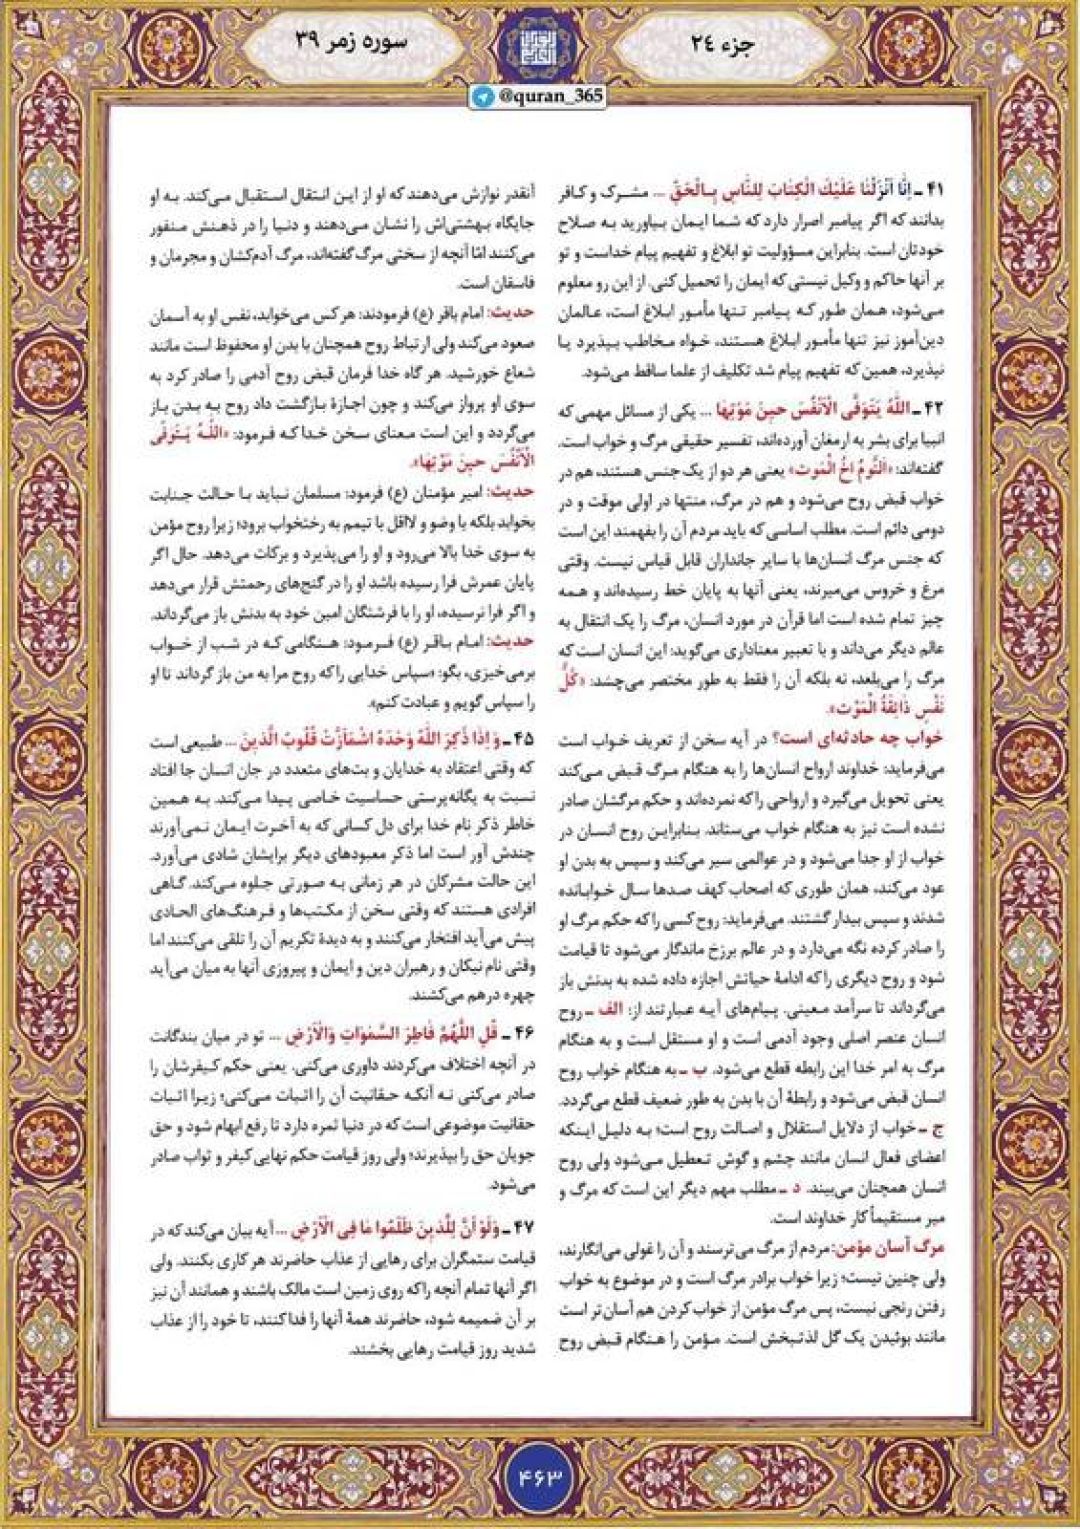 جزء ۲۴
سوره زمر ۳۹
@quran_365
۴۱ ـ اِنّٰا اَنْزَلْنٰا عَلَیْكَ الْکِتٰابَ لِلنّٰاسِ بِالْحَقِّ ... مشرک و کافر
بدانند که اگر پیامبر اصرار دارد که شما ایمان بیاورید به صلاح
خودتان است. بنابراین مسؤولیت تو ابلاغ و تفهیم پیام خداست و تو
بر آنها حاکم و وکیل نیستی که ایمان را تحمیل کنی. از این رو معلوم
می‌شود، همان طور که پیامبر تنها مأمور ابلاغ است، عالمان
دین‌آموز نیز تنها مأمور ابلاغ هستند، خواه مخاطب بپذیرد یا
نپذیرد، همین که تفهیم پیام شد تکلیف از علما ساقط می‌شود.
۴۲ ـ اَللّٰهُ یَتَوَفَّی الْاَنْفُسَ حینَ مَوْتِهٰا ... یکی از مسائل مهمی که
انبیا برای بشر به ارمغان آورده‌اند، تفسیر حقیقی مرگ و خواب است.
گفته‌اند: «اَلنَّومُ اخُ الْمَوت» یعنی هر دو از یک جنس هستند، هم در
خواب قبض روح می‌شود و هم در مرگ، منتها در اولی موقت و در
دومی دائم است. مطلب اساسی که باید مردم آن را بفهمند این است
که جنس مرگ انسان‌ها با سایر جانداران قابل قیاس نیست. وقتی
مرغ و خروس می‌میرند، یعنی آنها به پایان خط رسیده‌اند و همه
چیز تمام شده است اما قرآن در مورد انسان، مرگ را یک انتقال به
عالم دیگر می‌داند و با تعبیر معناداری می‌گوید: این انسان است که
مرگ را می‌بلعد، نه بلکه آن را فقط به طور مختصر می‌چشد: «كُلُّ
نَفْسٍ ذٰائِقَةُ الْمَوْت».
خواب چه حادثه‌ای است؟ در آیه سخن از تعریف خواب است
می‌فرماید: خداوند ارواح انسان‌ها را به هنگام مرگ قبض می‌کند
یعنی تحویل می‌گیرد و ارواحی را که نمرده‌اند و حکم مرگشان صادر
نشده است نیز به هنگام خواب می‌ستاند. بنابراین روح انسان در
خواب از او جدا می‌شود و در عوالمی سیر می‌کند و سپس به بدن او
عود می‌کند، همان طوری که اصحاب کهف صدها سال خوابانده
شدند و سپس بیدار گشتند. می‌فرماید: روح کسی را که حکم مرگ او
را صادر کرده نگه می‌دارد و در عالم برزخ ماندگار می‌شود تا قیامت
شود و روح دیگری را که ادامهٔ حیاتش اجازه داده شده به بدنش باز
می‌گرداند تا سرآمد معینی. پیام‌های آیه عبارتند از: الف ـ روح
انسان عنصر اصلی وجود آدمی است و او مستقل است و به هنگام
مرگ به امر خدا این رابطه قطع می‌شود. ب ـ به هنگام خواب روح
انسان قبض می‌شود و رابطهٔ آن با بدن به طور ضعیف قطع می‌گردد.
ج ـ خواب از دلایل استقلال و اصالت روح است؛ به دلیل اینکه
اعضای فعال انسان مانند چشم و گوش تعطیل می‌شود ولی روح
انسان همچنان می‌بیند. د ـ مطلب مهم دیگر این است که مرگ و
میر مستقیماً کار خداوند است.
مرگ آسان مؤمن: مردم از مرگ می‌ترسند و آن را غولی می‌انگارند،
ولی چنین نیست؛ زیرا خواب برادر مرگ است و در موضوع به خواب
رفتن رنجی نیست، پس مرگ مؤمن از خواب کردن هم آسان‌تر است
مانند بوئیدن یک گل لذتبخش است. مؤمن را هنگام قبض روح
آنقدر نوازش می‌دهند که او از این انتقال استقبال می‌کند. به او
جایگاه بهشتی‌اش را نشان می‌دهند و دنیا را در ذهنش منفور
می‌کنند امّا آنچه از سختی مرگ گفته‌اند، مرگ آدم‌کشان و مجرمان و
فاسقان است.
حدیث: امام باقر (ع) فرمودند: هر کس می‌خوابد، نفس او به آسمان
صعود می‌کند ولی ارتباط روح همچنان با بدن او محفوظ است مانند
شعاع خورشید. هر گاه خدا فرمان قبض روح آدمی را صادر کرد به
سوی او پرواز می‌کند و چون اجازهٔ بازگشت داد روح به بدن باز
می‌گردد و این است معنای سخن خدا که فرمود: «اَللّٰهُ یَتَوَفَّی
الْاَنْفُسَ حینَ مَوْتِهٰا».
حدیث: امیر مؤمنان (ع) فرمود: مسلمان نباید با حالت جنابت
بخوابد بلکه با وضو و لااقل با تیمم به رختخواب برود؛ زیرا روح مؤمن
به سوی خدا بالا می‌رود و او را می‌پذیرد و برکات می‌دهد. حال اگر
پایان عمرش فرا رسیده باشد او را در گنج‌های رحمتش قرار می‌دهد
و اگر فرا نرسیده، او را با فرشتگان امین خود به بدنش باز می‌گرداند.
حدیث: امام باقر (ع) فرمود: هنگامی که در شب از خواب
برمی‌خیزی، بگو: «سپاس خدایی را که روح مرا به من باز گرداند تا او
را سپاس گویم و عبادت کنم».
۴۵ ـ وَ اِذٰا ذُکِرَ اللّٰهُ وَحْدَهُ اشْمَأَزَّتْ قُلُوبُ الَّذینَ ... طبیعی است
که وقتی اعتقاد به خدایان و بت‌های متعدد در جان انسان جا افتاد
نسبت به یگانه‌پرستی حساسیت خاصی پیدا می‌کند. به همین
خاطر ذکر نام خدا برای دل کسانی که به آخرت ایمان نمی‌آورند
چندش آور است اما ذکر معبودهای دیگر برایشان شادی می‌آورد.
این حالت مشرکان در هر زمانی به صورتی جلوه می‌کند. گاهی
افرادی هستند که وقتی سخن از مکتب‌ها و فرهنگ‌های الحادی
پیش می‌آید افتخار می‌کنند و به دیدهٔ تکریم آن را تلقی می‌کنند اما
وقتی نام نیکان و رهبران دین و ایمان و پیروزی آنها به میان می‌آید
چهره درهم می‌کشند.
۴۶ ـ قُلِ اللّٰهُمَّ فٰاطِرَ السَّمٰوٰاتِ وَالْاَرْضِ ... تو در میان بندگانت
در آنچه اختلاف می‌کردند داوری می‌کنی، یعنی حکم کیفرشان را
صادر می‌کنی نه آنکه حقانیت آن را اثبات می‌کنی؛ زیرا اثبات
حقانیت موضوعی است که در دنیا ثمره دارد تا رفع ابهام شود و حق
جویان حق را بپذیرند؛ ولی روز قیامت حکم نهایی کیفر و ثواب صادر
می‌شود.
۴۷ ـ وَلَوْ اَنَّ لِلَّذینَ ظَلَمُوا مٰا فِی الْاَرْضِ ... آیه بیان می‌کند که در
قیامت ستمگران برای رهایی از عذاب حاضرند هر کاری بکنند. ولی
اگر آنها تمام آنچه را که روی زمین است مالک باشند و همانند آن نیز
بر آن ضمیمه شود، حاضرند همهٔ آنها را فدا کنند، تا خود را از عذاب
شدید روز قیامت رهایی بخشند.
۴۶۳